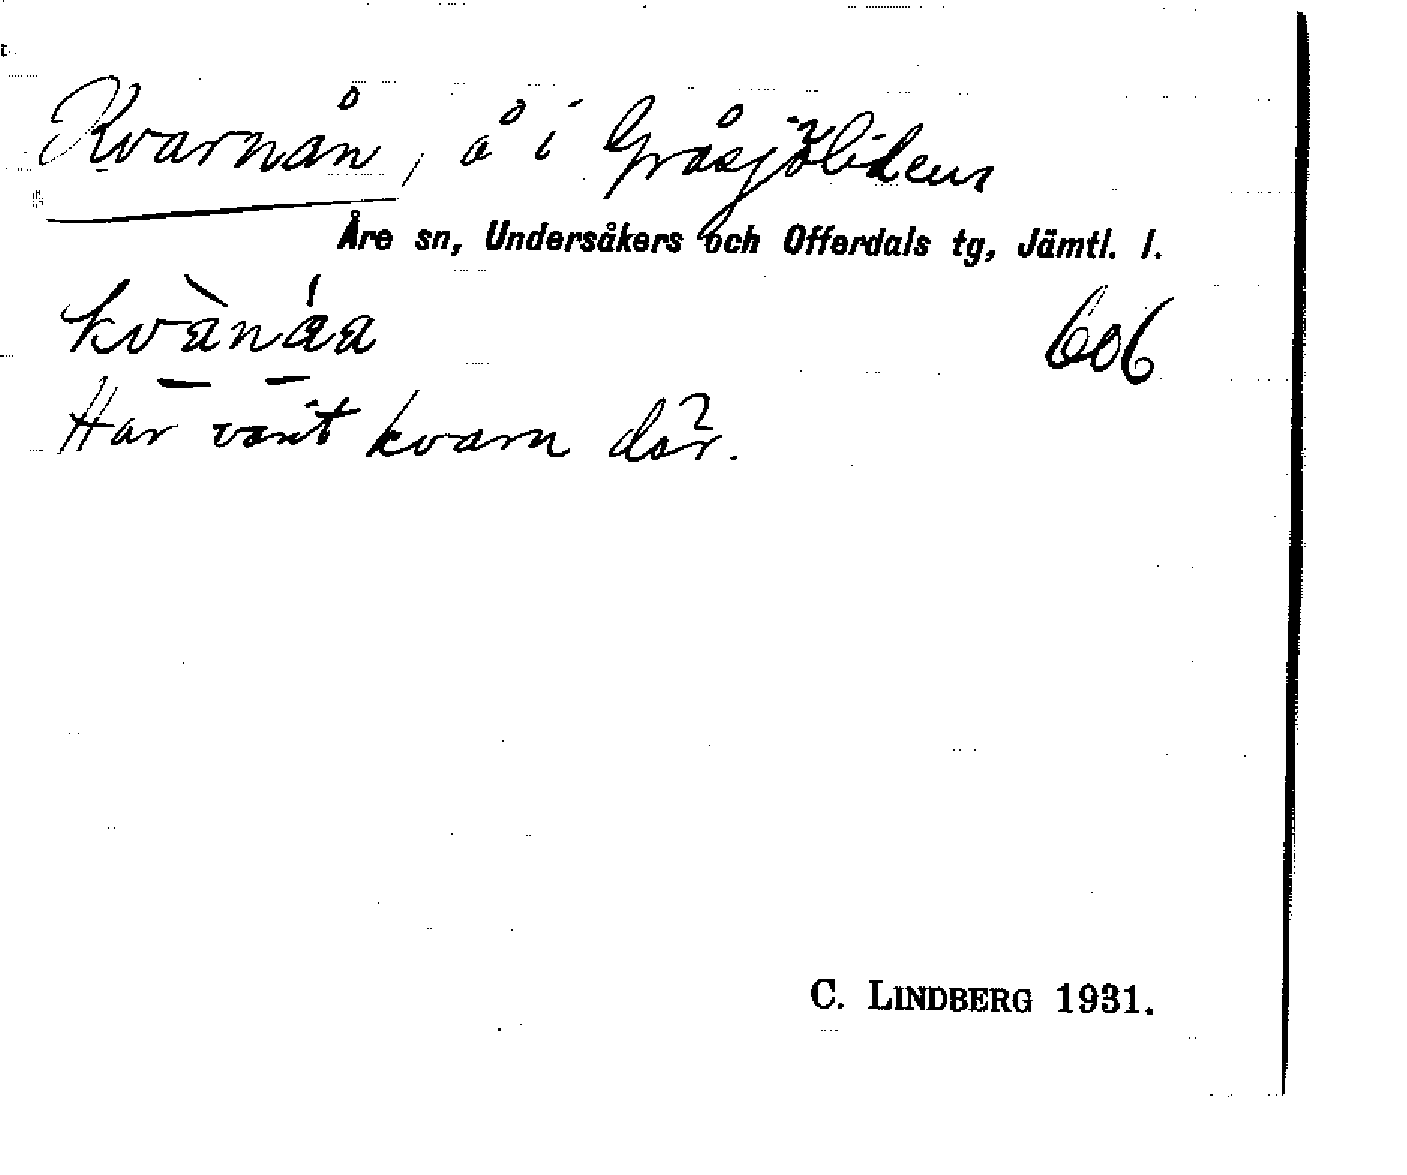 Kvarnån, å i Gråsjölidens
Åre sn, Undersåkers och Offerdals tg, Jämtl. l.
kvànáa 606
Har varit kvarn där.
C. LINDBERG 1931.